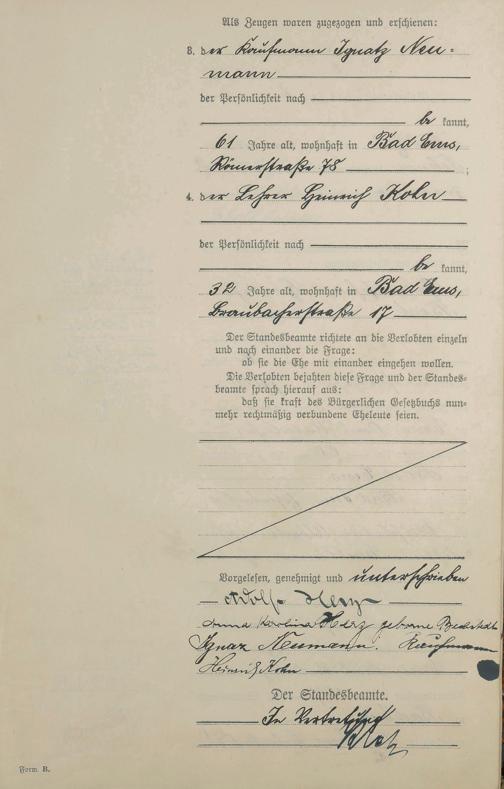 Als Zeugen waren zugezogen und erschienen:
3. der Kaufmann Ignatz Neu-
mann
der Persönlichkeit nach
be kannt,
61 Jahre alt, wohnhaft in Bad Ems,
Römerstraße 78 ;
4. der Lehrer Heinrich Kohn
der Persönlichkeit nach
be kannt,
32 Jahre alt, wohnhaft in Bad Ems,
Braubacherstraße 17
Der Standesbeamte richtete an die Verlobten einzeln
und nach einander die Frage:
ob sie die Ehe mit einander eingehen wollen.
Die Verlobten bejahten diese Frage und der Standes=
beamte sprach hierauf aus:
daß sie kraft des Bürgerlichen Gesetzbuchs nun=
mehr rechtmäßig verbundene Eheleute seien.
Vorgelesen, genehmigt und unterschrieben
Adolf Herz
Anna Karolina Herz geborne
Ignaz Neumann. Kaufmann
Heinrich Kohn
Der Standesbeamte.
In Vertretung
Form. B.